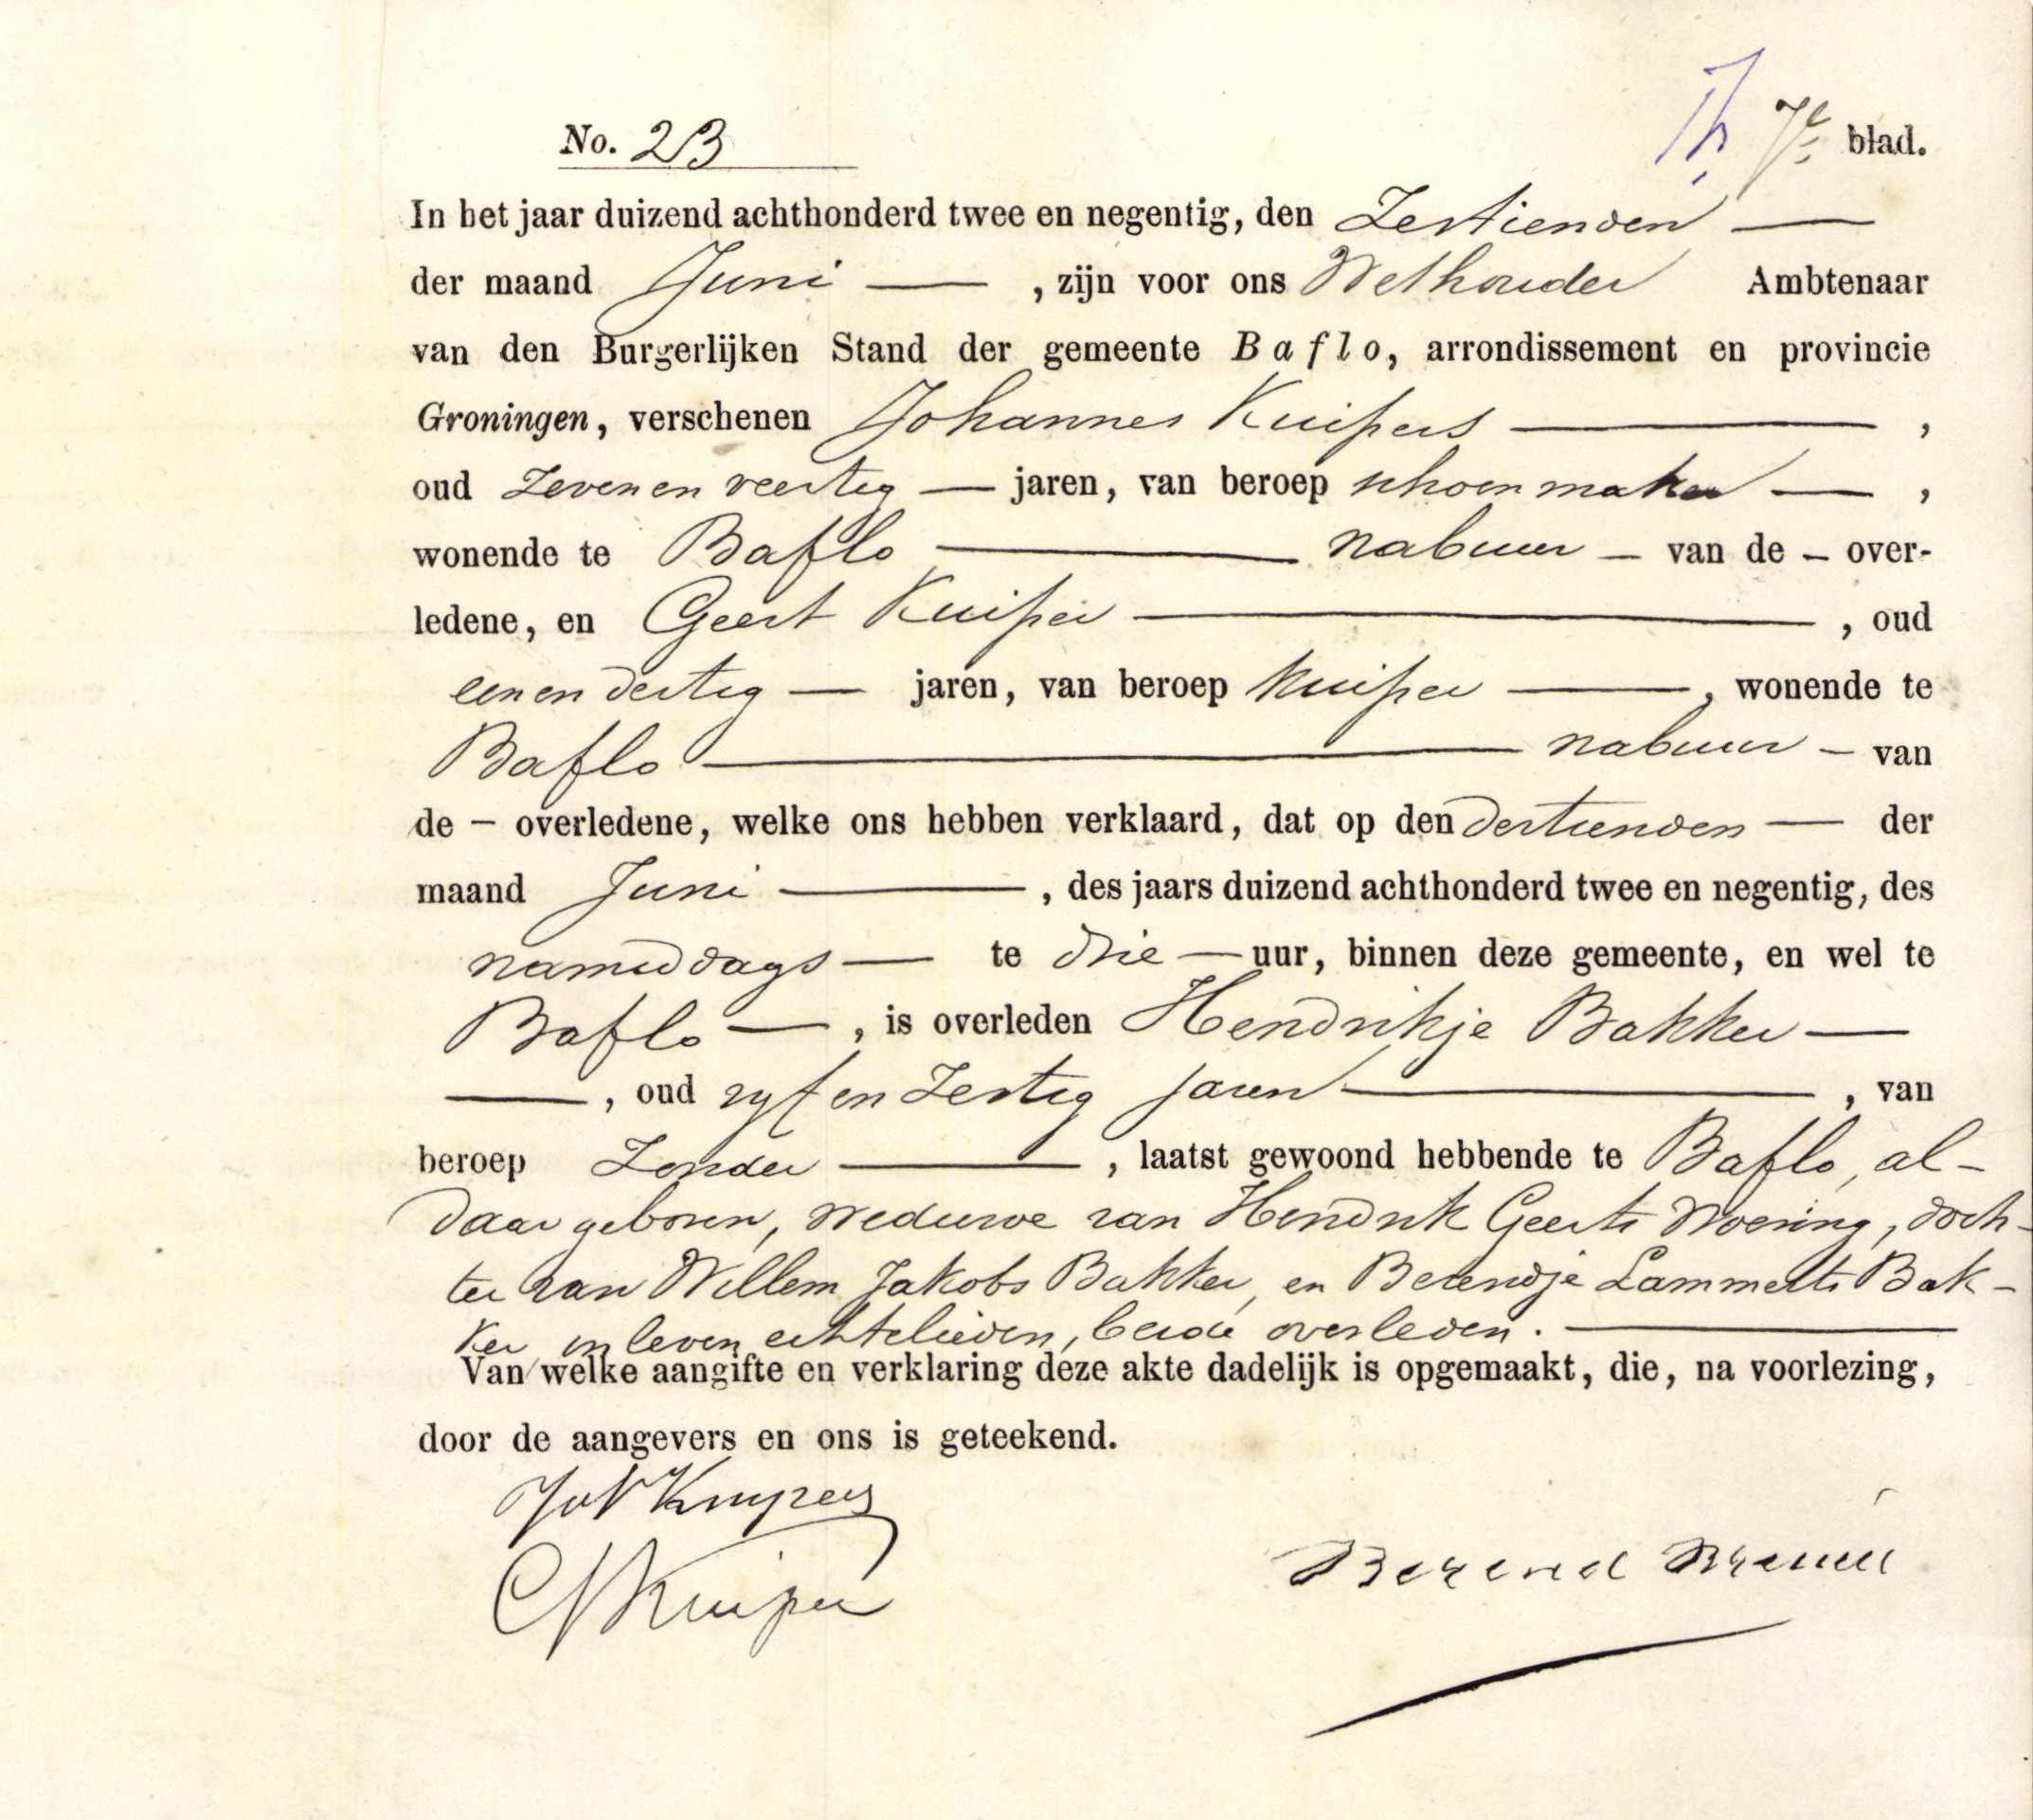 No. 23
7e blad.
In het jaar duizend achthonderd twee en negentig, den Zestienden
der maand Juni, zijn voor ons Wethouder Ambtenaar
van den Burgerlijken Stand der gemeente Baflo, arrondissement en provincie
Groningen, verschenen Johannes Kuipers,
oud Zeven en veertig jaren, van beroep schoenmaker,
wonende te Baflo nabuur van de over-
ledene, en Geert Kuiper, oud
een en dertig jaren, van beroep Kuiper, wonende te
Baflo nabuur van
de overledene, welke ons hebben verklaard, dat op den dertienden der
maand Juni, des jaars duizend achthonderd twee en negentig, des
namiddags te drie uur, binnen deze gemeente, en wel te
Baflo, is overleden Hendrikje Bakker
, oud vyf en Zestig jaren, van
beroep Zonder, laatst gewoond hebbende te Baflo, al-
daar geboren, weduwe van Hendrik Geerts Woering, doch-
ter van Willem Jakobs Bakker, en Berendje Lammerts Bak-
ker in leven echtelieden, beide overleden.
Van welke aangifte en verklaring deze akte dadelijk is opgemaakt, die, na voorlezing,
door de aangevers en ons is geteekend.
Joh Kuypers
G Kuiper
Berend